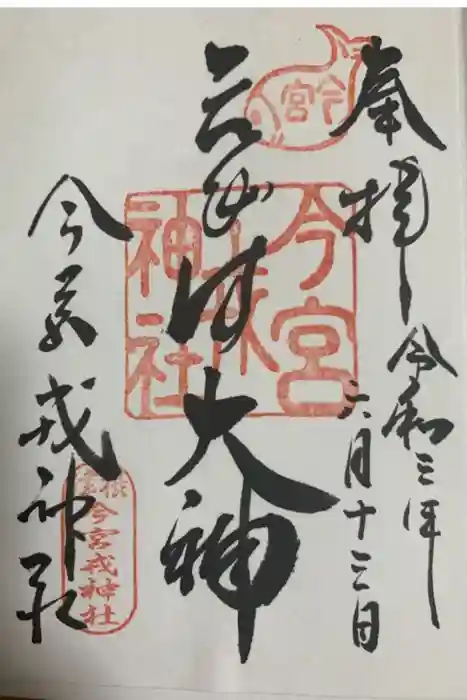 奉拝
令和三年
六月十三日
大神
今宮戎神社
今宮
今宮戎神社
今宮戎神社